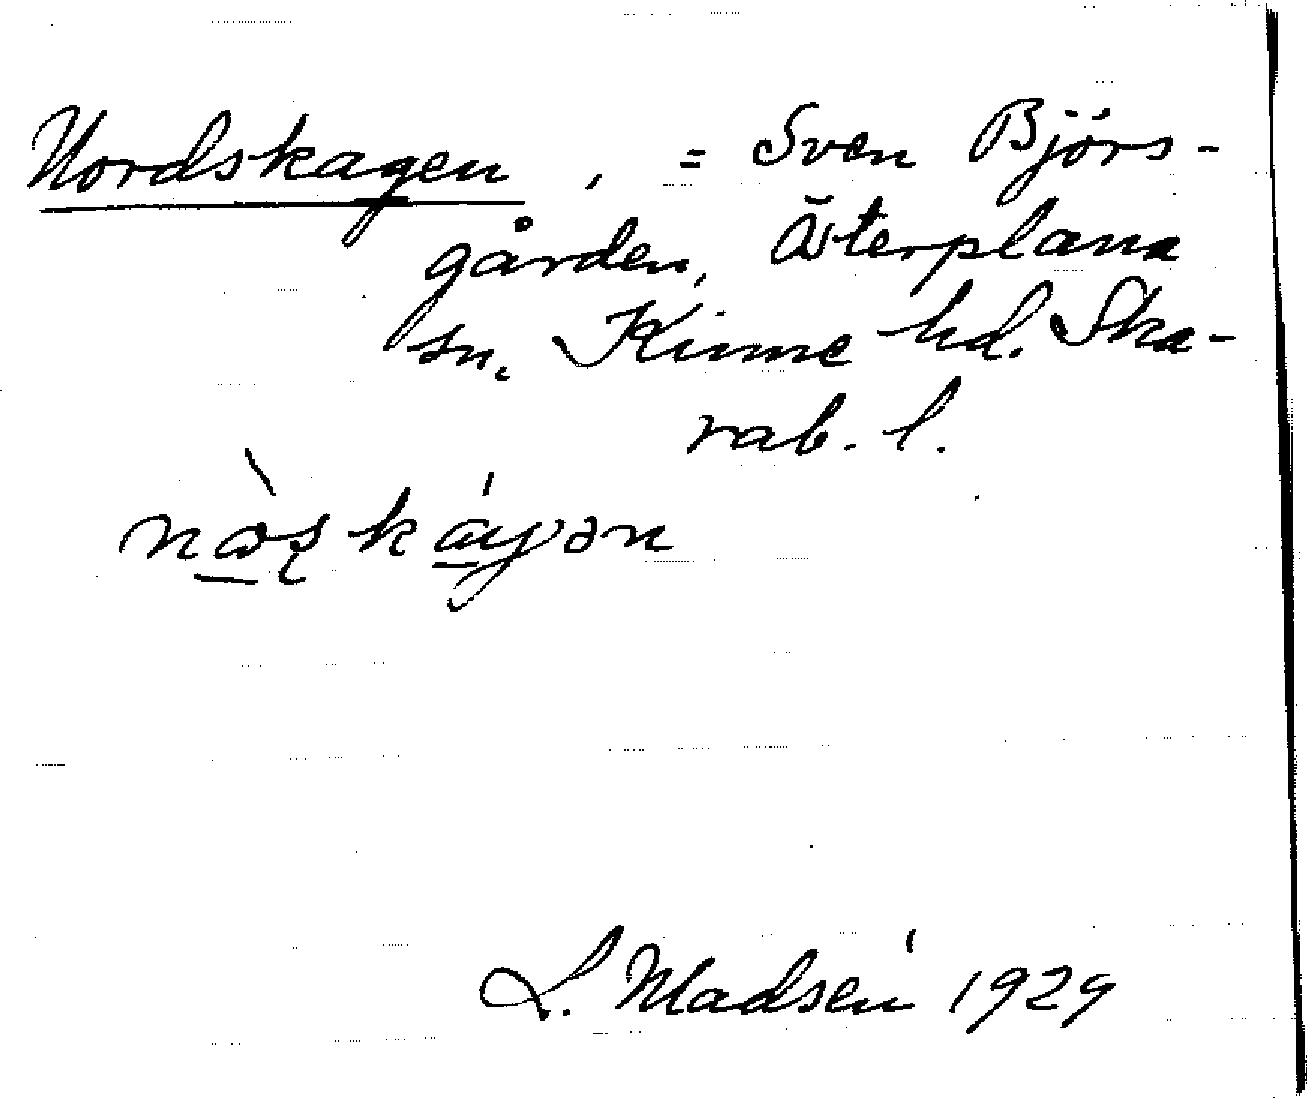 Nordskagen, = Sven Björs-
gården, Österplana
sn. Kinne hd. Ska-
rab. l.
L. Madsén 1929